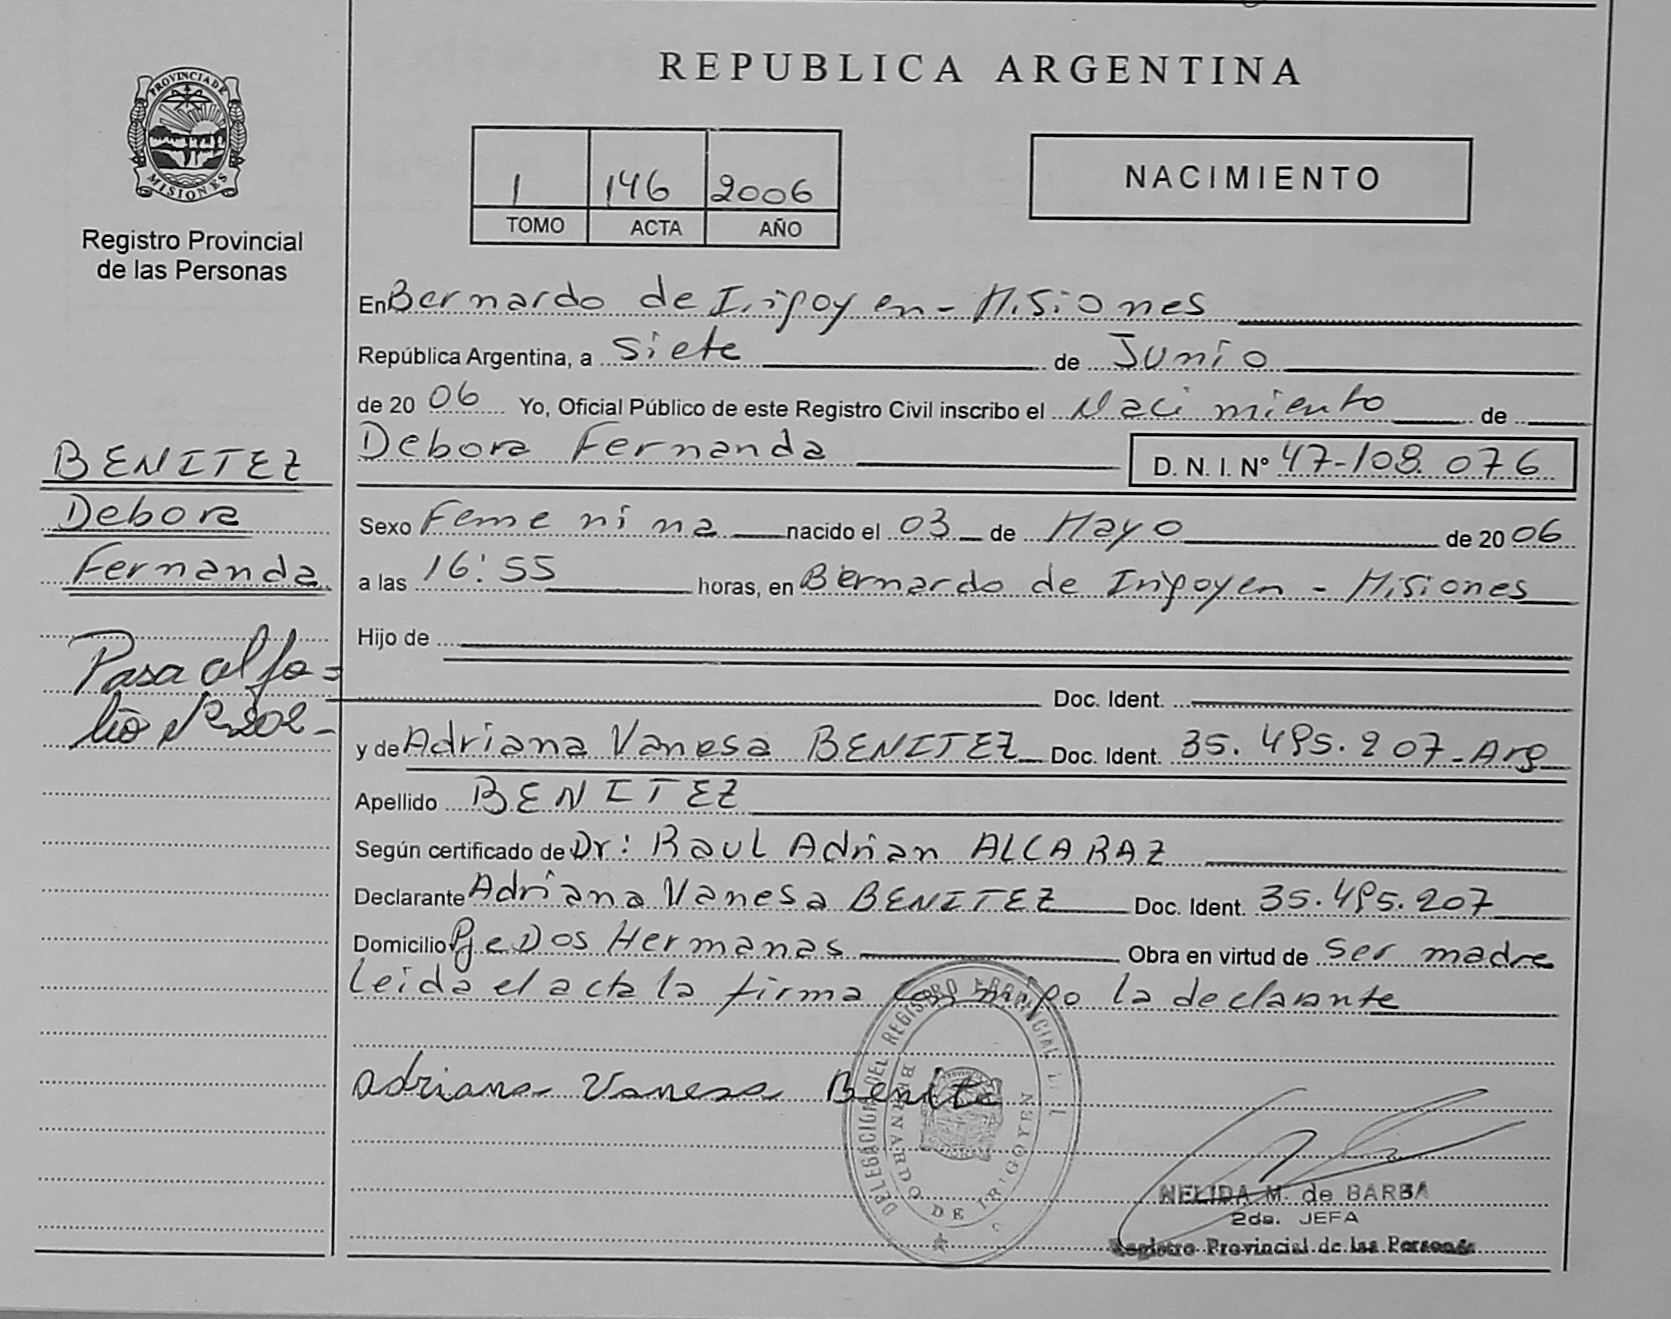 REPUBLICA ARGENTINA
PROVINCIA DE
MISIONES
Registro Provincial
de las Personas
1 146 2006
TOMO ACTA AÑO
NACIMIENTO
En Bernardo de Irigoyen - Misiones
República Argentina, a siete de Junio
de 20 06 Yo, Oficial Público de este Registro Civil inscribo el Nacimiento de
Debora Fernanda D. N. I. Nº 47-108.076
BENITEZ
Debora
Fernanda
Sexo Femenina nacido el 03 de Mayo de 20 06
a las 16:55 horas, en Bernardo de Irigoyen - Misiones
Hijo de
Pasa al fo-
lio Nº 202-
Doc. Ident.
y de Adriana Vanesa BENITEZ Doc. Ident. 35.495.207-Arg
Apellido BENITEZ
Según certificado de Dr: Raul Adrian ALCARAZ
Declarante Adriana Vanesa BENITEZ Doc. Ident. 35.495.207
Domicilio Pje Dos Hermanas Obra en virtud de ser madre
Leida el acta la firma conmigo la declarante
adriana Vanesa Benite
DELEGACION DEL REGISTRO PROVINCIAL
BERNARDO DE IRIGOYEN
NELIDA M. de BARBA
2da. JEFA
Registro Provincial de las Personas